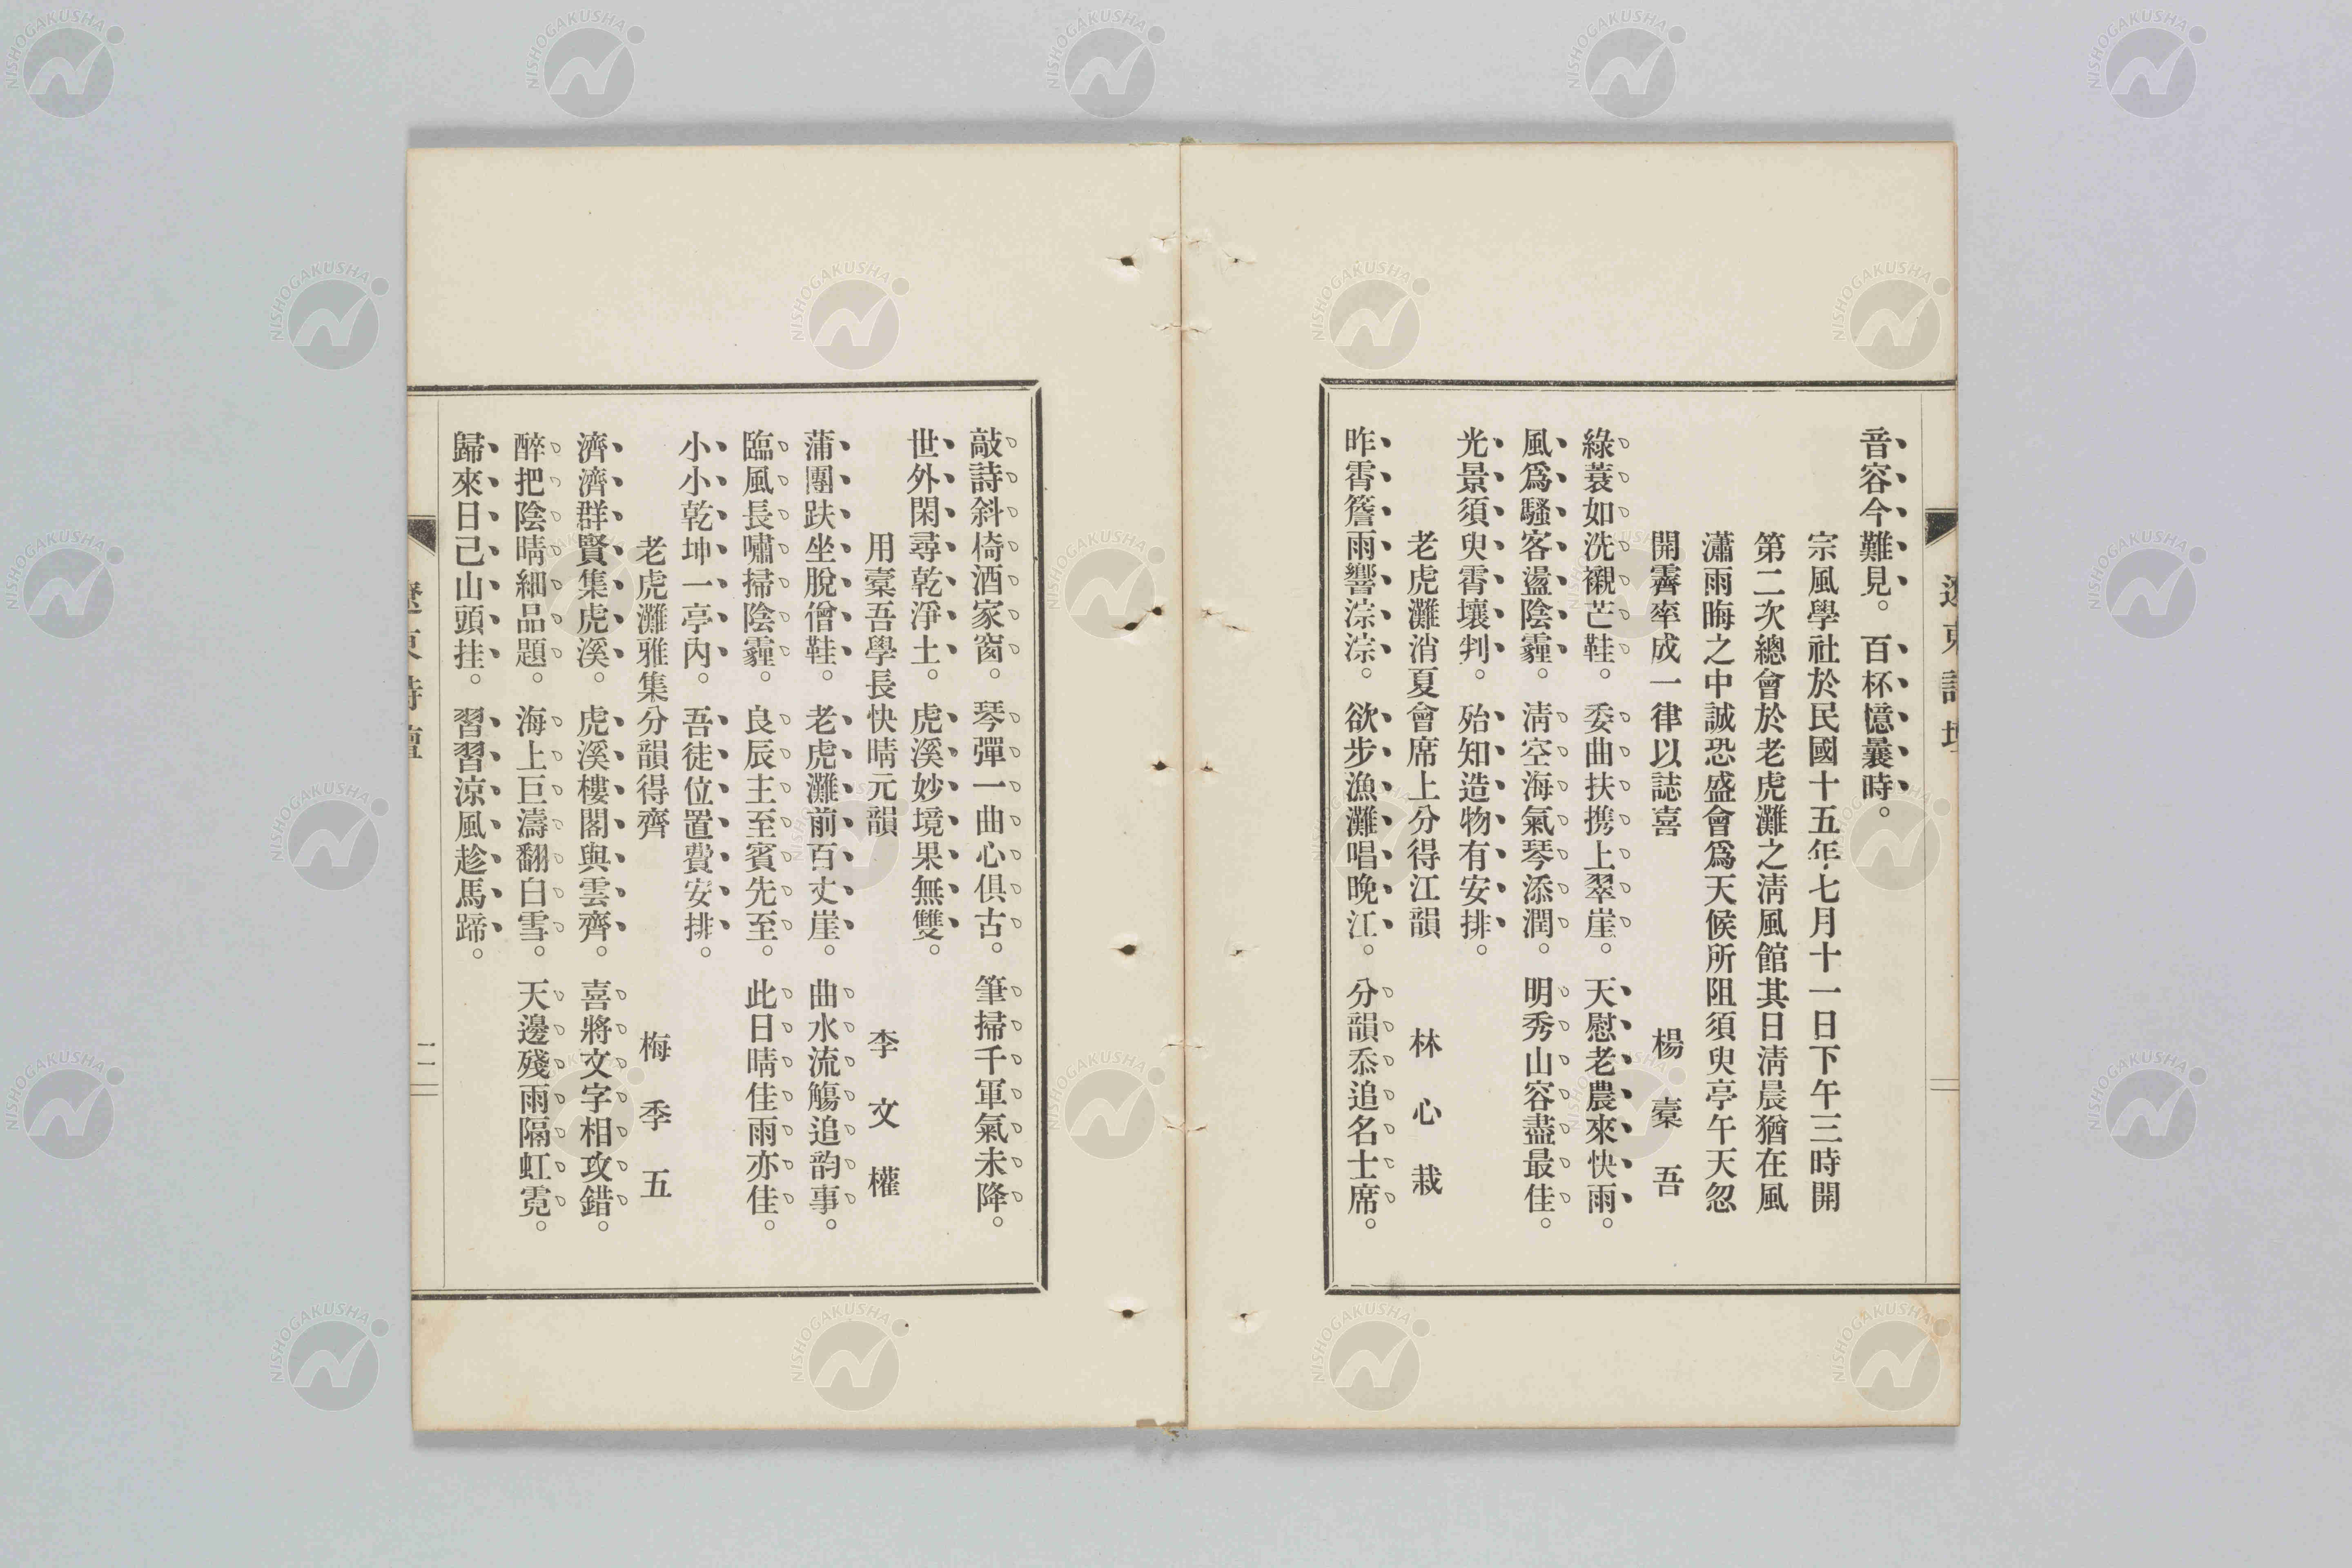 音容今難見。百杯憶曩時。
宗風學社於民國十五年七月十一日下午三時開
第二次總會於老虎灘之淸風館其日淸晨猶在風
瀟雨晦之中誠恐盛會爲天候所阻須臾亭午天忽
開霽率成一律以誌喜
楊槖吾
綠蓑如洗襯芒鞋。委曲扶携上翠崖。天慰老農來快雨。
風爲騷客盪陰霾。淸空海氣琴添潤。明秀山容盡最佳。
光景須臾霄壤判。殆知造物有安排。
老虎灘消夏會席上分得江韻
林心栽
昨霄簷雨響淙淙。欲步漁灘唱晚江。分韻忝追名士席。
遼東詩壇
敲詩斜椅酒家窗。琴彈一曲心俱古。筆掃千軍氣未降。
世外閑尋乾淨土。虎溪妙境果無雙。
用槖吾學長快晴元韻
李文權
蒲團趺坐脫僧鞋。老虎灘前百丈崖。曲水流觴追韵事。
臨風長嘯掃陰霾。良辰主至賓先至。此日晴佳雨亦佳。
小小乾坤一亭內。吾徒位置費安排。
老虎灘雅集分韻得齊
梅季五
濟濟群賢集虎溪。虎溪樓閣與雲齊。喜將文字相攻錯。
醉把陰晴細品題。海上巨濤翻白雪。天邊殘雨隔虹霓。
歸來日己山頭挂。習習涼風趁馬蹄。
遼東詩壇
二
NISHOGAKUSHA